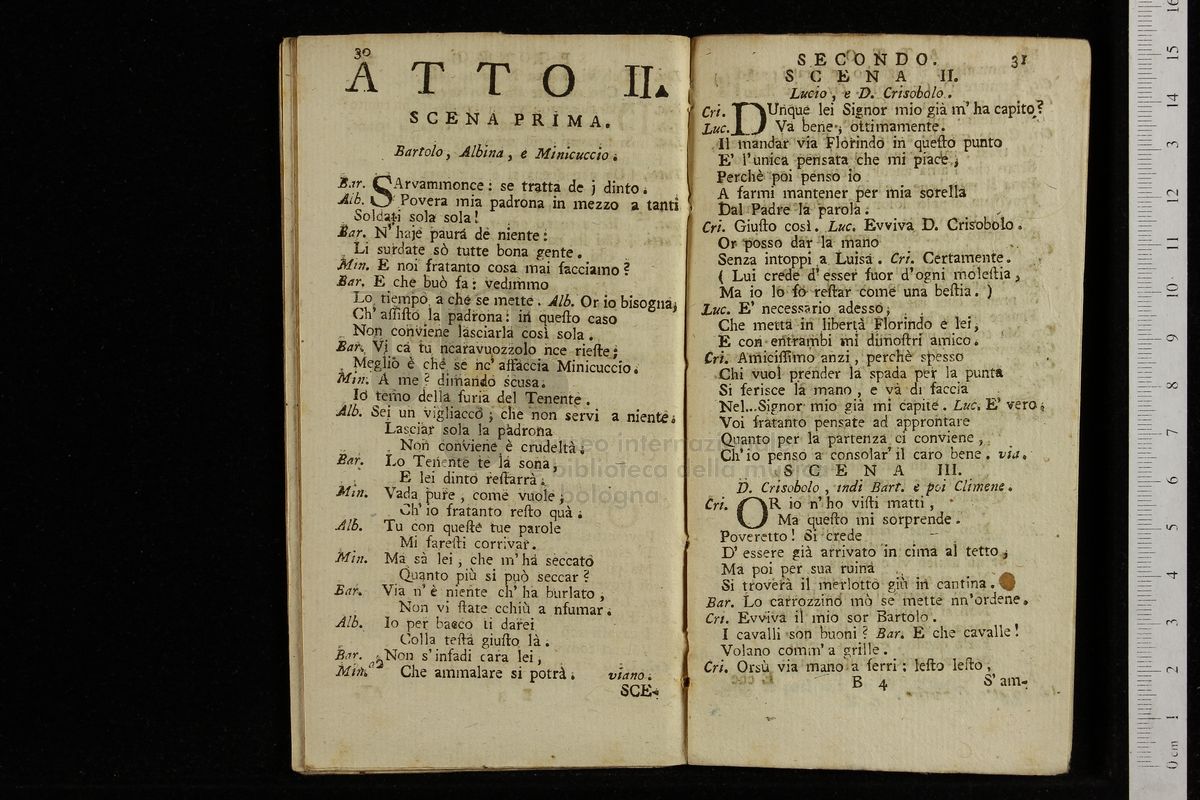 30
ATTO II.
SCENA PRIMA.
Bartolo, Albina, e Minicuccio.
Bar. SArvammonce: se tratta de j dinto.
Alb. Povera mia padrona in mezzo a tanti
Soldati sola sola!
Bar. N'haje paura de niente:
Li surdate sò tutte bona gente.
Min. E noi fratanto cosa mai facciamo?
Bar. E che buò fa: vedimmo
Lo tiempo a che se mette. Alb. Or io bisogna,
Ch' assisto la padrona: in questo caso
Non conviene lasciarla così sola.
Bar. Vi ca tu ncaravuozzolo nce rieste;
Meglio è che se nc' affaccia Minicuccio.
Min. A me? dimando scusa.
Io temo della furia del Tenente.
Alb. Sei un vigliacco; che non servi a niente.
Lasciar sola la padrona
Non conviene è crudeltà.
Bar. Lo Tenente te la sona,
E lei dinto restarrà.
Min. Vada pure, come vuole;
Ch' io fratanto resto quà.
Alb. Tu con queste tue parole
Mi faresti corrivar.
Min. Ma sà lei, che m' ha seccato
Quanto più si può seccar?
Bar. Via n' è niente ch' ha burlato,
Non vi state cchiù a nfumar.
Alb. Io per bacco ti darei
Colla testa giusto là.
Bar. Non s'infadi cara lei,
Min. Che ammalare si potrà. viano.
SCE-
SECONDO. 31
SCENA II.
Lucio, e D. Crisobolo.
Cri. DUnque lei Signor mio già m' ha capito?
Luc. Va bene, ottimamente.
Il mandar via Florindo in questo punto
E' l'unica pensata che mi piace,
Perchè poi penso io
A farmi mantener per mia sorella
Dal Padre la parola.
Cri. Giusto così. Luc. Evviva D. Crisobolo.
Or posso dar la mano
Senza intoppi a Luisa. Cri. Certamente.
( Lui crede d' esser fuor d'ogni molestia,
Ma io lo fò restar come una bestia. )
Luc. E' necessario adesso,
Che metta in libertà Florindo e lei,
E con entrambi mi dimostri amico.
Cri. Amicissimo anzi, perchè spesso
Chi vuol prender la spada per la punta
Si ferisce la mano, e và di faccia
Nel...Signor mio già mi capite. Luc. E' vero,
Voi fratanto pensate ad approntare
Quanto per la partenza ci conviene,
Ch' io penso a consolar' il caro bene. via.
SCENA III.
D. Crisobolo, indi Bart. e poi Climene.
Cri. OR io n' ho visti matti,
Ma questo mi sorprende.
Poveretto! Si crede
D' essere già arrivato in cima al tetto,
Ma poi per sua ruina
Si troverà il merlotto giù in cantina.
Bar. Lo carrozzino mò se mette nn'ordene.
Cri. Evviva il mio sor Bartolo.
I cavalli son buoni? Bar. E che cavalle!
Volano comm' a grille.
Cri. Orsù via mano a ferri: lesto lesto,
B 4 S' am-